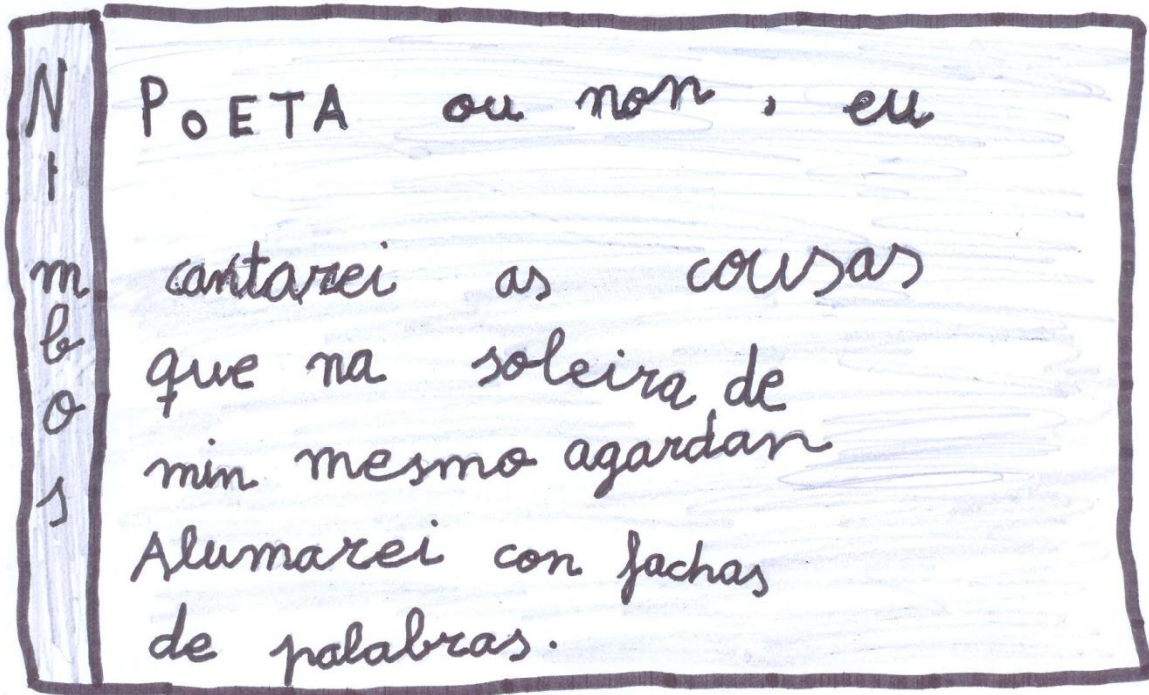 NImbos
POETA ou non, eu
cantarei as cousas
que na soleira de
min mesmo agardan
Alumarei con fachas
de palabras.